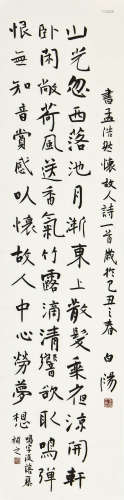 書孟浩然懷故人詩一首歲於乙丑之春 白陽
山光忽西落池月漸東上散髮乘涼開軒
卧閑敞荷風送香氣竹露滴清響欲取鳴彈
恨無知音賞感此懷故人中心勞夢想
鳴字後落琴
補之